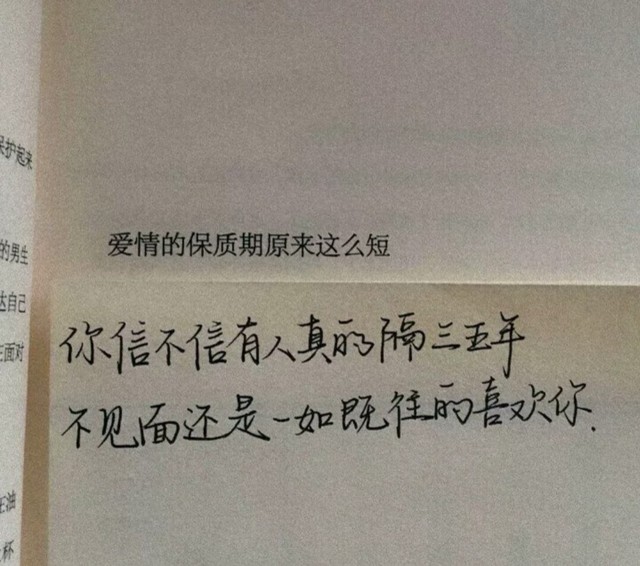 保护起来
的男生
达自己
在面对
爱情的保质期原来这么短
你信不信有人真的隔三五年
不见面还是一如既往的喜欢你.
油
杯